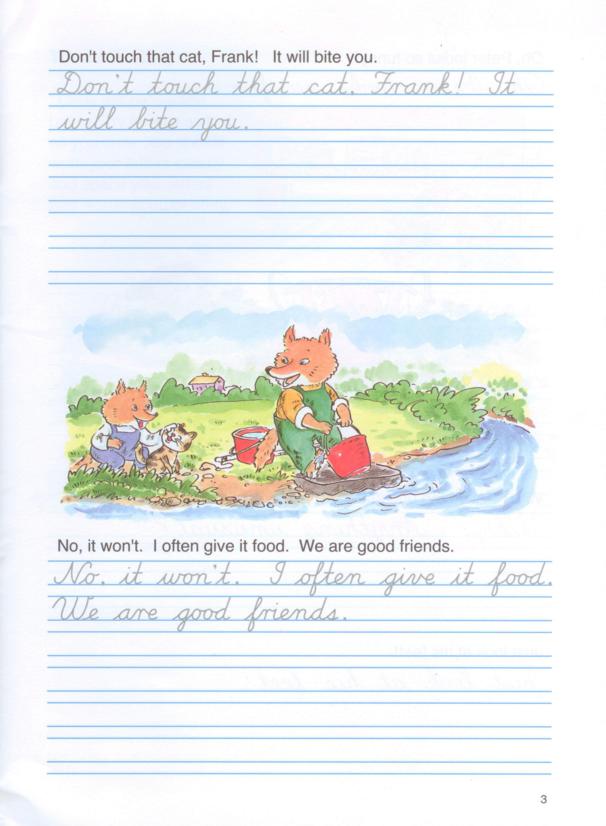 Don't touch that cat, Frank! It will bite you.
Don't touch that cat. Frank! It
will bite you.
No, it won't. I often give it food. We are good friends.
No. it won't. I often give it food.
We are good friends.
3